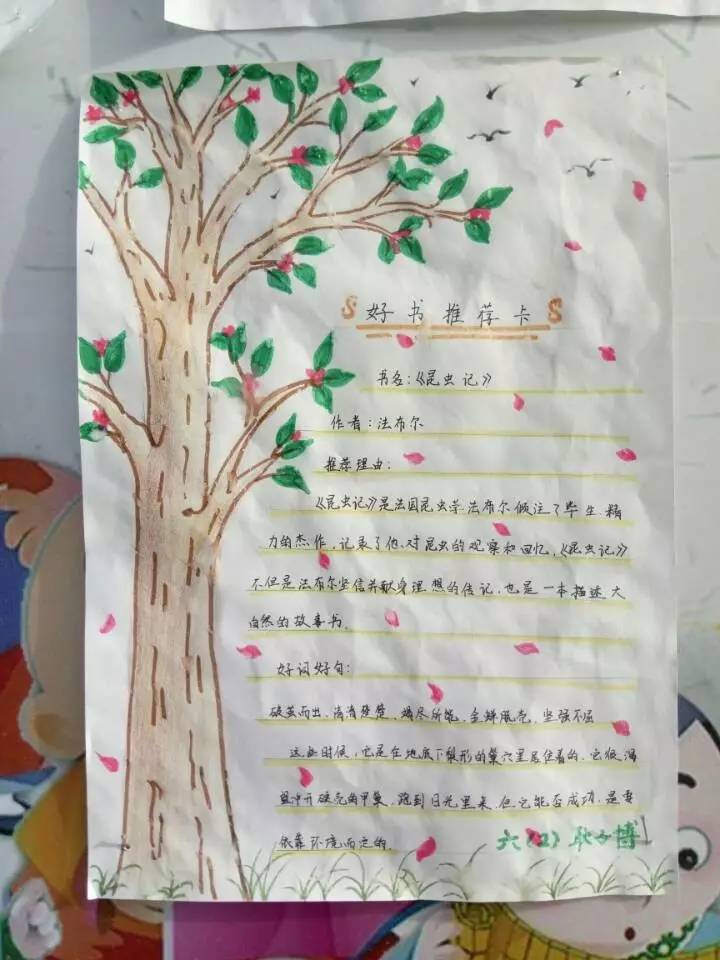 好书推荐卡
书名:《昆虫记》
作者:法布尔
推荐理由:
《昆虫记》是法国昆虫学.法布尔倾注了毕生精
力的杰作,记录了他对昆虫的观察和回忆,《昆虫记》
不但是法布尔坚信并献身理想的传记,也是一本描述大
自然的故事书.
好词好句:
破茧而出、清清楚楚、竭尽所能、金蝉脱壳、坚强不屈
这些时候,它是在地底下梨形的巢穴里居住着的.它很渴
望冲开硬壳的甲巢,跑到日光里来.但它能否成功,是要
依靠环境而定的.
六(2)耿子博